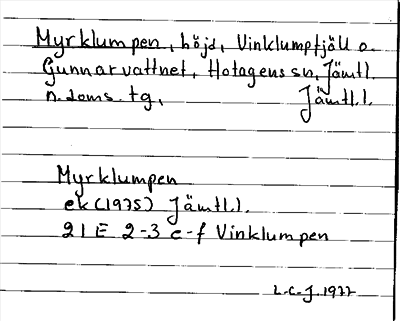 Myrklumpen, höjd, Vinklumpfjäll o.
Gunnarvattnet, Hotagens sn, Jämtl.
n. doms. tg, Jämtl.l.
Myrklumpen
ek (1975) Jämtl.l.
21 E 2-3 e-f Vinklumpen
L-C-J. 1977